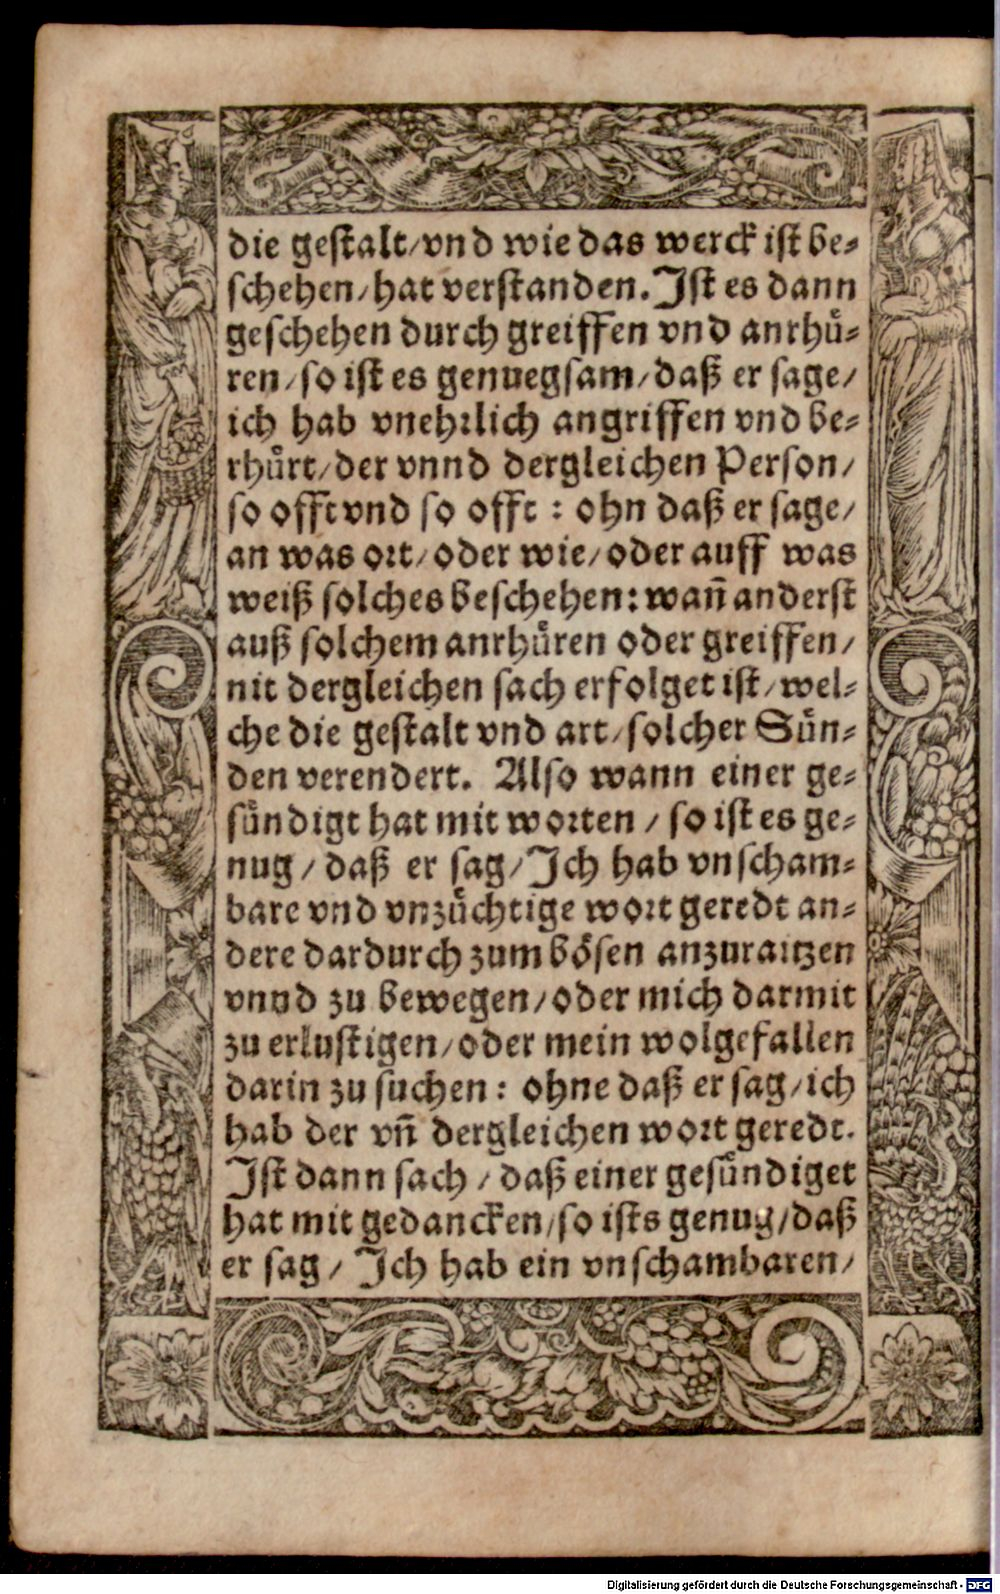 die gestalt/vnd wie das werck ist be⸗
schehen/hat verstanden. Ist es dann
geschehen durch greiffen vnd anrhuͤ⸗
ren/so ist es genuegsam/daß er sage/
ich hab vnehrlich angriffen vnd be⸗
rhuͤrt/der vnnd dergleichen Person/
so offt vnd so offt : ohn daß er sage/
an was ort/oder wie/oder auff was
weiß solches beschehen: wañ anderst
auß solchem anrhuͤren oder greiffen/
nit dergleichen sach erfolget ist/wel⸗
che die gestalt vnd art/solcher Suͤn⸗
den verendert. Also wann einer ge⸗
suͤndigt hat mit worten / so ist es ge⸗
nug / daß er sag/Ich hab vnscham⸗
bare vnd vnzuͤchtige wort geredt an⸗
dere dardurch zum boͤsen anzuraitzen
vnnd zu bewegen/oder mich darmit
zu erlustigen/oder mein wolgefallen
darin zu suchen : ohne daß er sag/ich
hab der vñ dergleichen wort geredt.
Ist dann sach / daß einer gesuͤndiget
hat mit gedancken/so ists genug/daß
er sag / Ich hab ein vnschambaren/
Digitalisierung gefördert durch die Deutsche Forschungsgemeinschaft - DFG